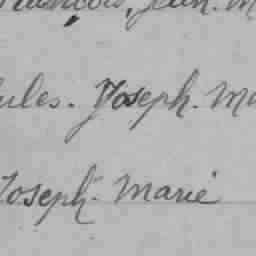 Jean. M
ules. Joseph. Ma
Joseph. Marie